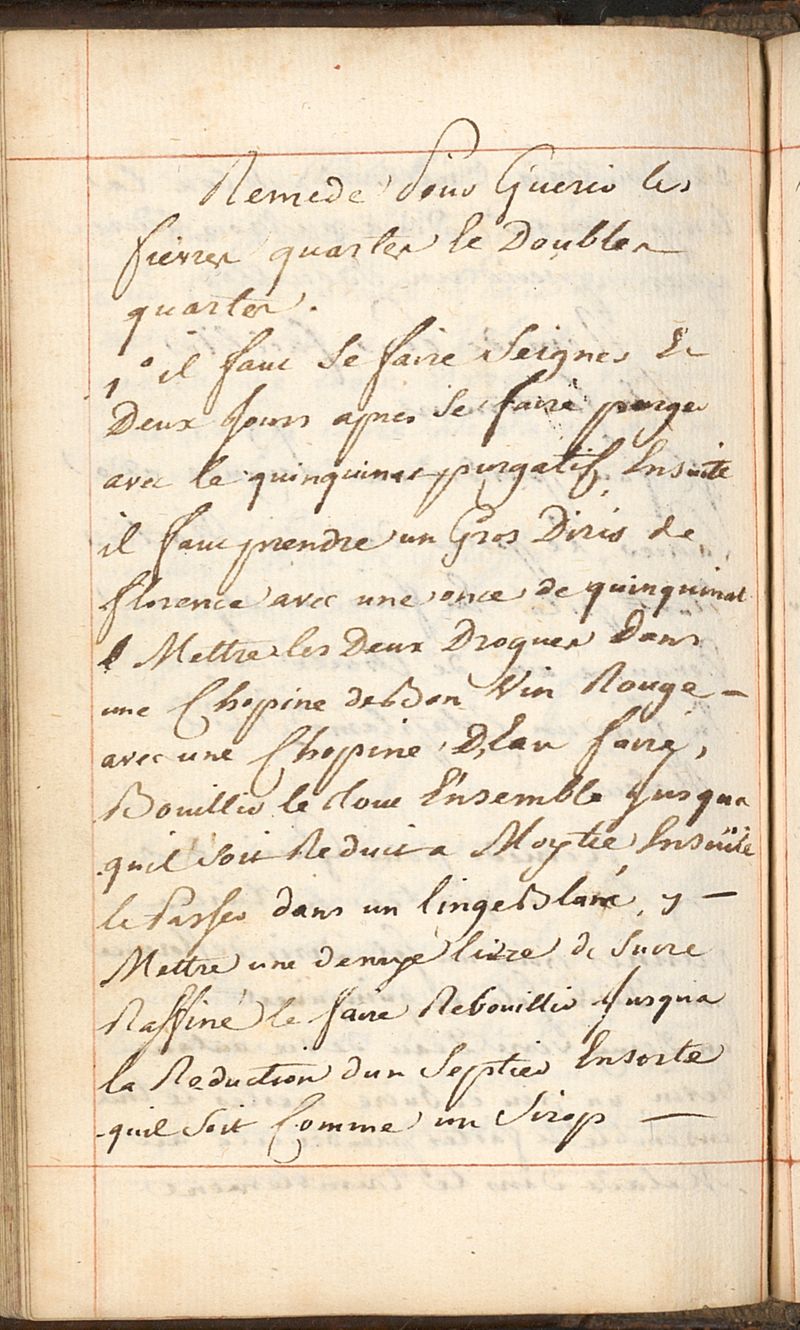 Remede Pour Guerir les
fievres quartes Et Doubles
quartes.
1° il faut Se faire Seigner Et
Deux Jours apres Se faire purger
avec le quinquinat purgatif, Ensuite
il faut prendre un Gros Diris de
florence avec une once de quinquinat
Mettre les Deux Drogues Dans
une Chopine de Bon Vin Rouge —
avec une Chopine D'Eau faire,
Bouillir le tout Ensemble Jusqua
quil Soit Reduit a Moytie, Ensuite
le Passer dans un linge Blanc, y —
Mettre une demye livre de Sucre
Raffiné le faire Rebouillir Jusqua
la Reduction dun Septier Ensorte
quil Soit Comme un Sirop —